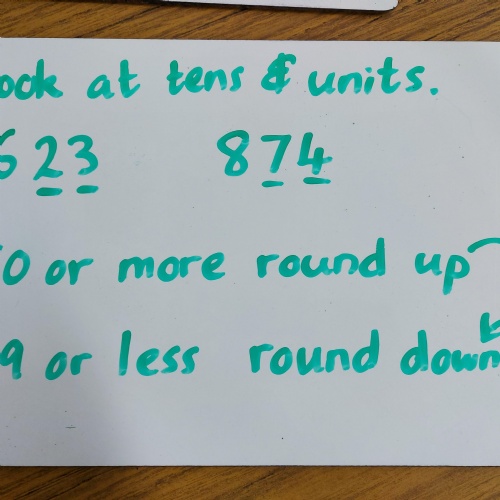 ook at tens & units.
623 874
50 or more round up
9 or less round down